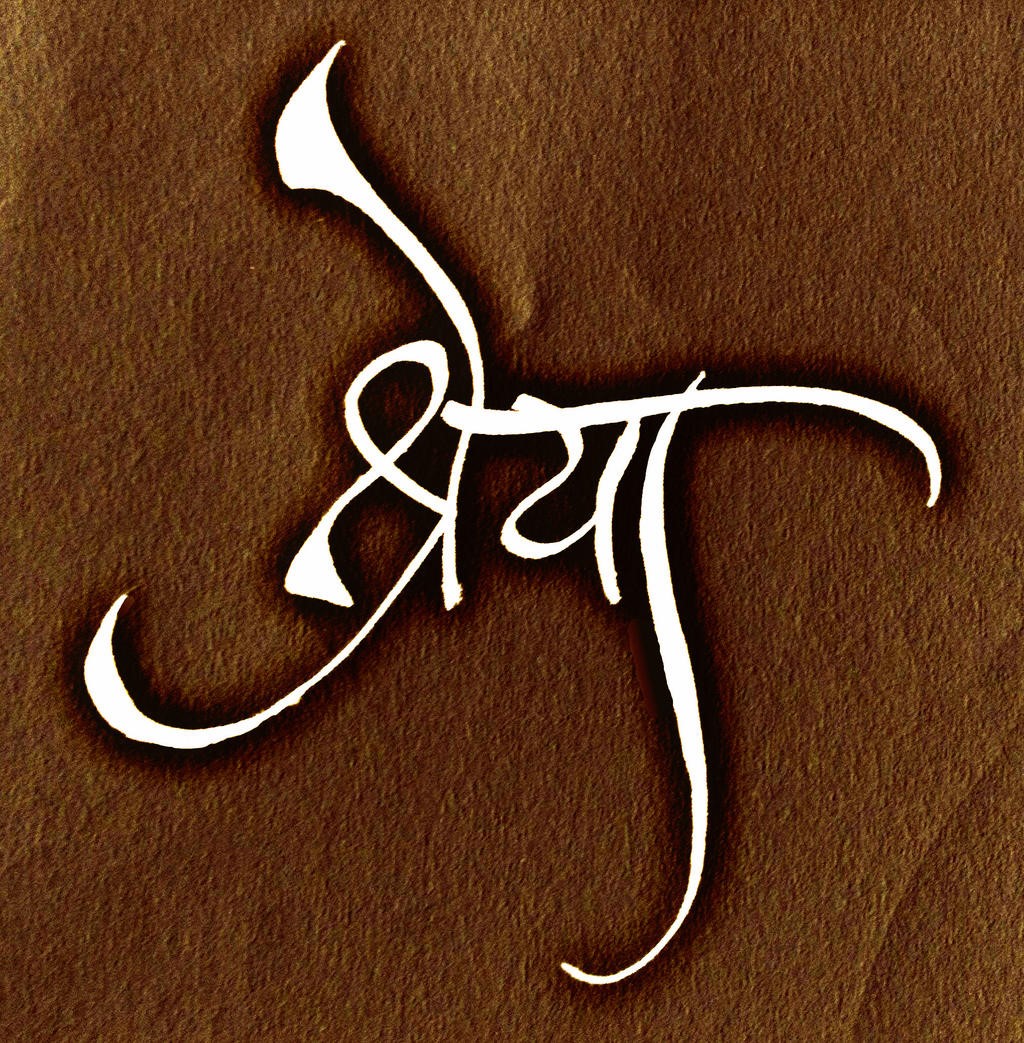 श्रेया